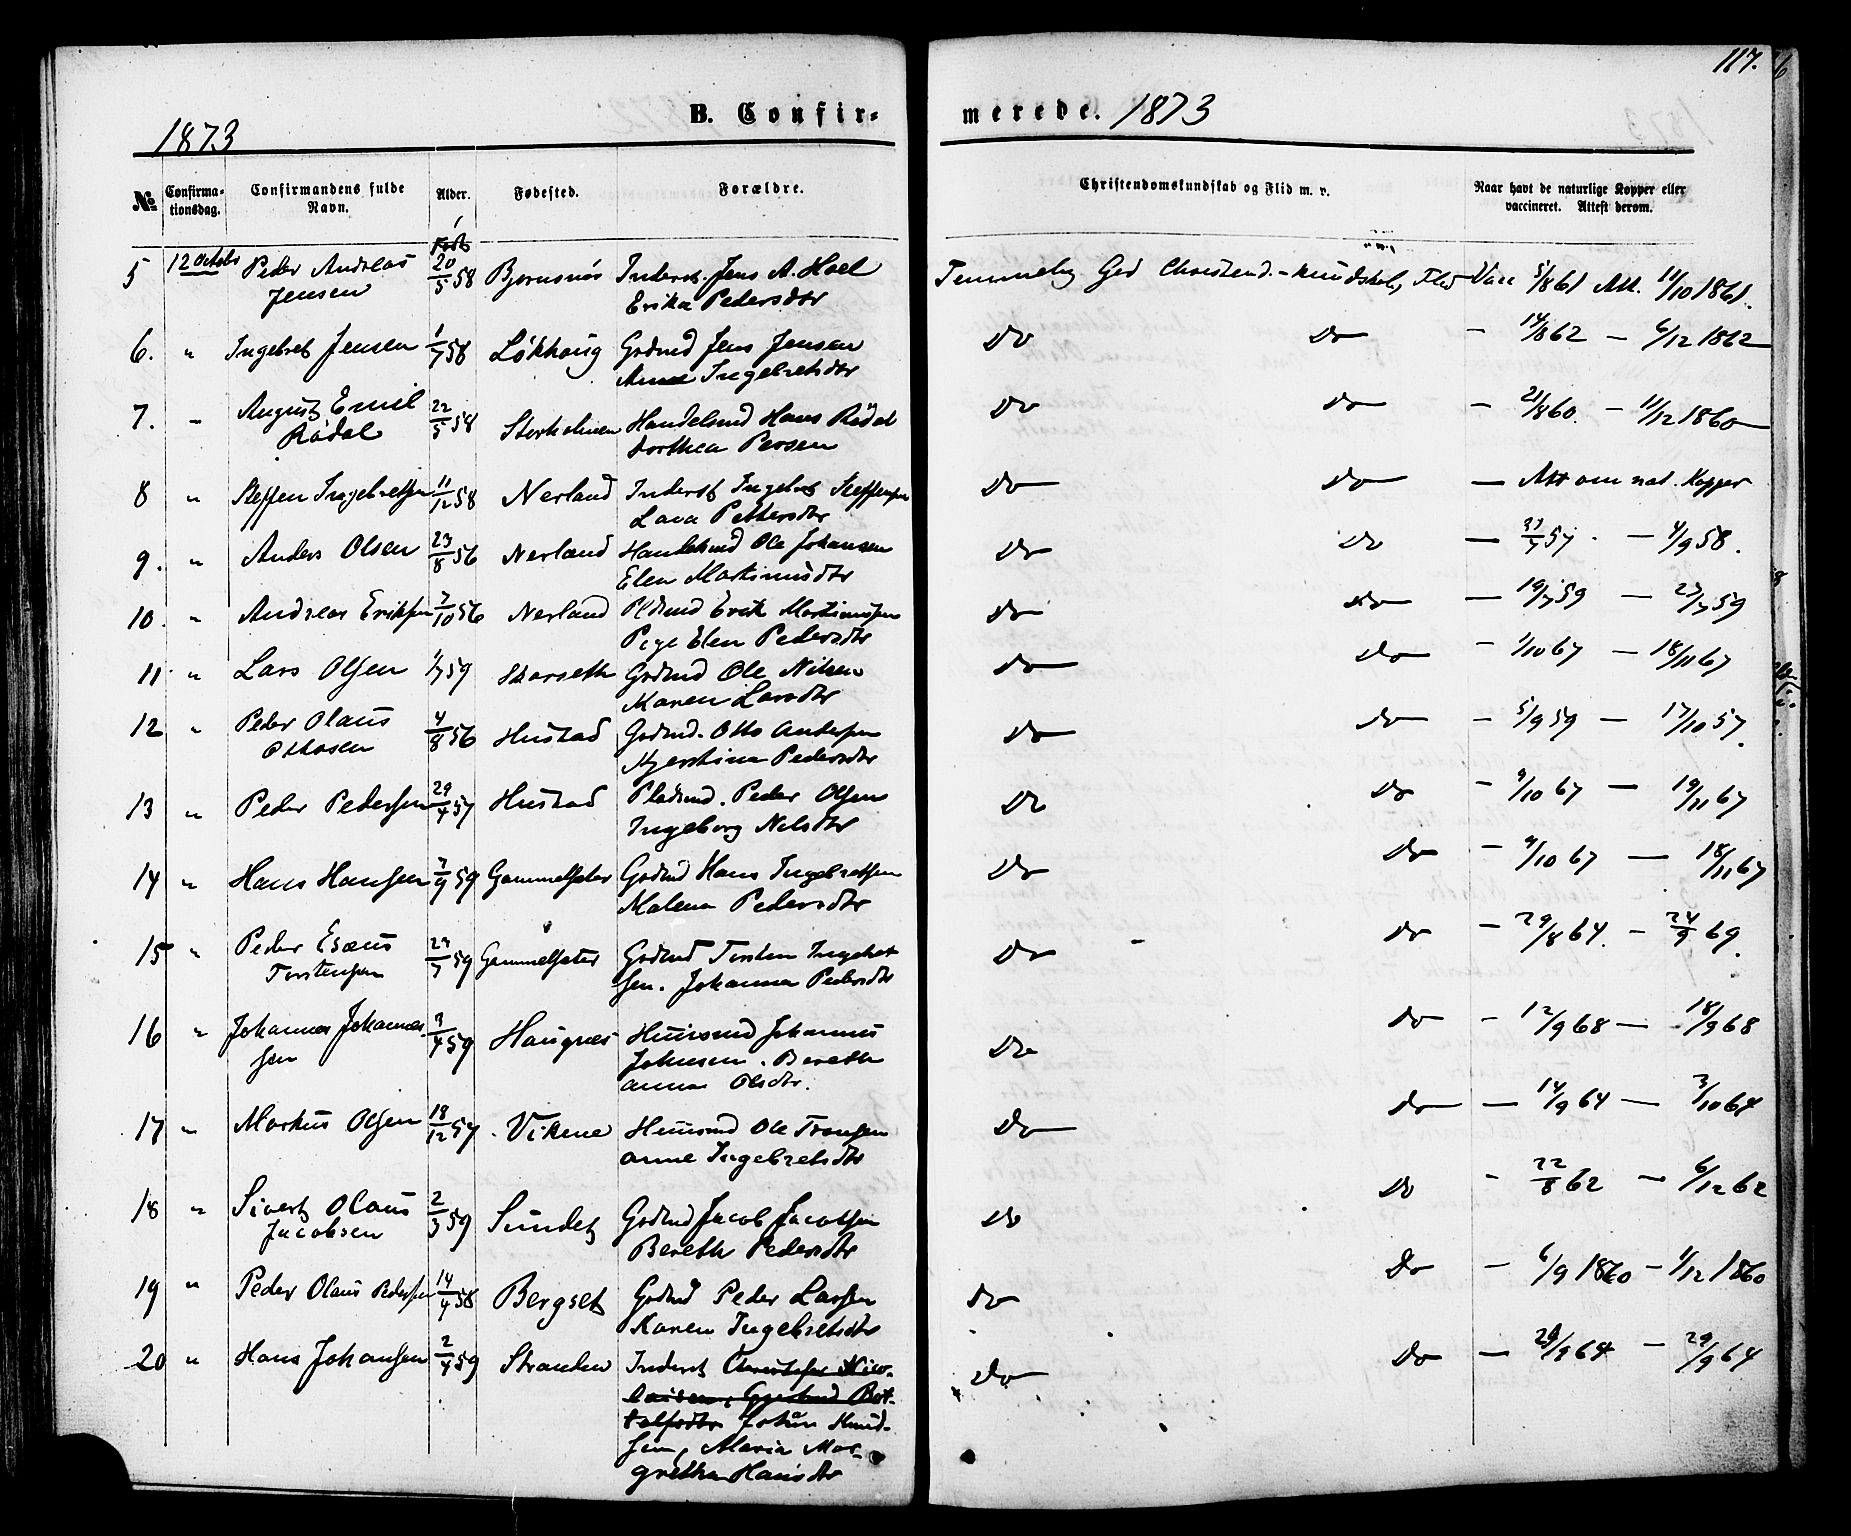 117.
B. Confir-
merede. 1873
1873
№
Confirma-
tionsdag.
Confirmandens fulde
Navn.
Alder.
Fødested.
Forældre.
Christendomskundskab og Flid m. v.
Naar havt de naturlige Kopper eller
vaccineret. Attest derom.
5 12 Octob Peder Andreas 20/5 58 Bjørnsnøs Inderst Jens A. Hoel God Christend.-kundskab, Flid Vacc 5/8 61 Att. 11/10 1861.
Jensen Erika Pedersdtr
6. " Ingebret Jensen 1/7 58 Løkhoug Grdmd Jens Jensen Do Do - 14/8 62 - 6/12 1862
Anne Ingebretsdtr
7. " August Emil 22/5 58 Storholmen Handelsmd Hans Rødal Do Do - 21/8 60. - 11/12 1860
Rødal Dorthea Persen
8 " Steffen Ingebretsen 11/12 58 Nerland Inderst Ingebret Steffensen Do Do - Att om nat. Kopper
Lava Pettersdtr
9. " Anders Olsen 23/8 56 Nerland Handelsmd Ole Johansen Do Do - 57 - 4/9 58.
Elen Martinusdtr
10. " Andreas Eriksen 7/10 56 Nerland Pldsmd Erik Martinussen Do Do - 19/7 59 - 23/7 59
Pige Elen Pedersdtr
11. " Lars Olsen 1/7 59 Skarseth Grdmd Ole Nilsen Do Do - 1/10 67 - 18/11 67
Karen Larsdtr
12 " Peder Olaus 4/8 56 Hustad Grdmd. Otto Andersen Do Do - 5/9 59 - 17/10 57.
Ottosen Kjerstina Pedersdtr
13 " Peder Pedersen 29/4 57 Hustad Pladsmd. Peder Olsen Do Do - 9/10 67 - 19/11 67
Ingeborg Nilsdtr
14 " Hans Hansen 7/9 59 Gammelseter Grdmd Hans Ingebretsen Do Do - 9/10 67 - 18/11 67
Malena Pedersdtr
15 " Peder Esæus 59 Gammelseter Grdmd Torsten Ingebret Do Do - 29/8 64. - 24/9 69.
Torstensen sen. Johanna Pedersdtr
16 " Johannes Johannes 3/4 59 Haugnes Huusmd Johannes Do Do - 12/9 68 - 18/9 68
sen Johnsen. Bereth
Anna Olsdtr.
17 " Markus Olsen 18/12 57 Vikene Huusmd Ole Tronsen Do Do - 14/9 64 - 3/10 64
Anne Ingebretsdtr
18 " Sivert Olaus 2/3 59 Sundet Grdmd Jacob Jacobsen Do Do - 22/8 62 - 6/12 62
Jacobsen Bereth Pedersdtr
19 " Peder Olaus Pedersen 14/4 58 Bergset Grdmd Peder Larsen Do Do - 6/9 1860 - 1/12 1860
Karen Ingebretsdtr
20 " Hans Johansen 2/4 59 Stranden Inderst Christofer Nico- Do Do - 9 64 - 29/9 64
laisen, Gjertrud Bot-
tolfsdtr Johan Knud-
sen, Maria Mar-
gretha Hansdtr